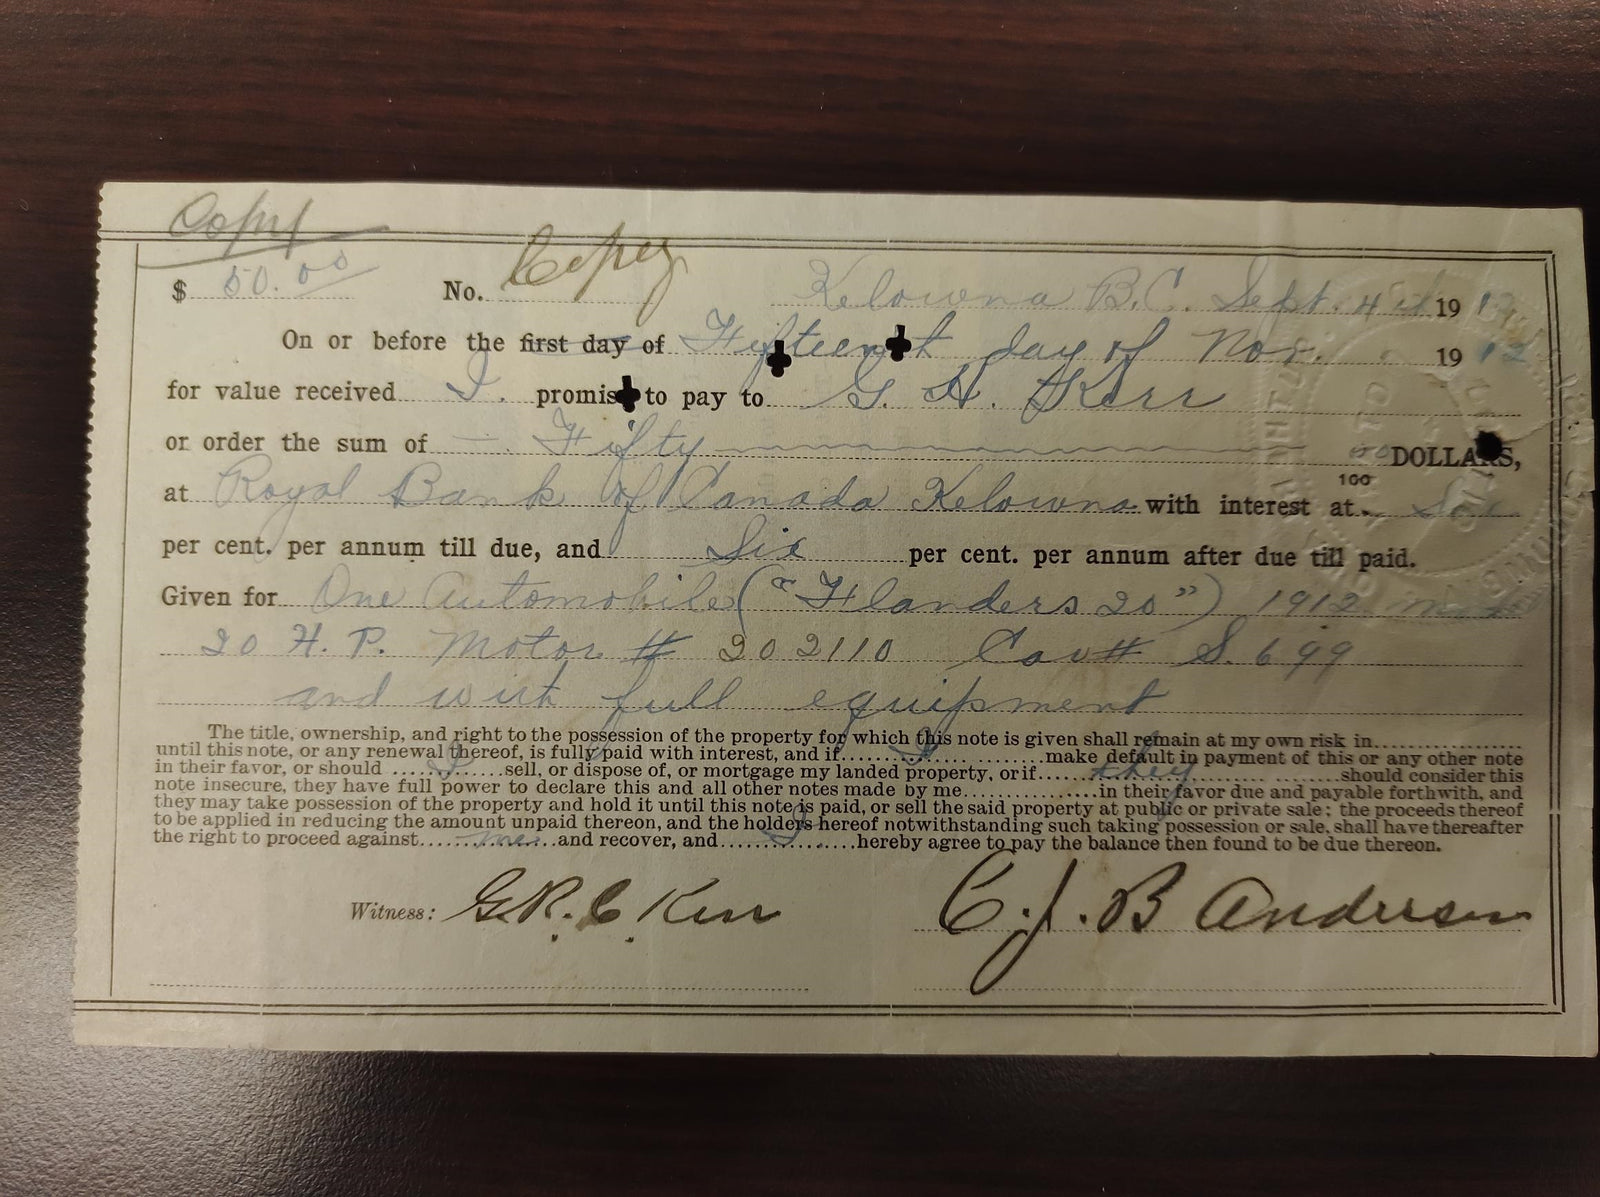 Copy
$ 50.00 No. Copy Kelowna B.C. Sept. 4th 1912
On or before the first day of Fifteenth day of Nov. 1912
for value received I promise to pay to G. H. Kerr
or order the sum of Fifty 00/100 DOLLARS,
at Royal Bank of Canada Kelowna with interest at Six
per cent. per annum till due, and Six per cent. per annum after due till paid.
Given for One Automobile ("Flanders 20") 1912
20 H. P. Motor # 202110 Car # S. 699
and with full equipment
The title, ownership, and right to the possession of the property for which this note is given shall remain at my own risk in
until this note, or any renewal thereof, is fully paid with interest, and if I make default in payment of this or any other note
in their favor, or should I sell, or dispose of, or mortgage my landed property, or if they should consider this
note insecure, they have full power to declare this and all other notes made by me in their favor due and payable forthwith, and
they may take possession of the property and hold it until this note is paid, or sell the said property at public or private sale; the proceeds thereof
to be applied in reducing the amount unpaid thereon, and the holders hereof notwithstanding such taking possession or sale, shall have thereafter
the right to proceed against me and recover, and I hereby agree to pay the balance then found to be due thereon.
Witness: G.R.C Kerr C.J.B Anderson